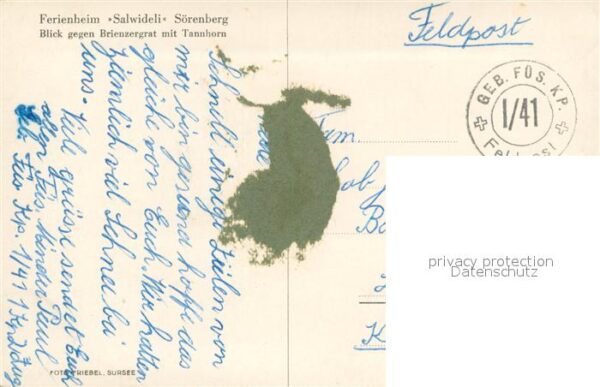 Ferienheim »Salwideli« Sörenberg
Blick gegen Brienzergrat mit Tannhorn
Feldpost
GEB. FÜS. KP.
I/41
Feldpost
Schnell einige Zeilen von
mir bin gesund hoffe das
gleiche von Euch. Wir haten
ziemlich viel Schnee bei
uns.
Viele grüsse sendet Euch
allen Füs. Paul
Füs Kp. 1/41 Zug
Fam.
privacy protection
Datenschutz
FOTO FRIEBEL, SURSEE